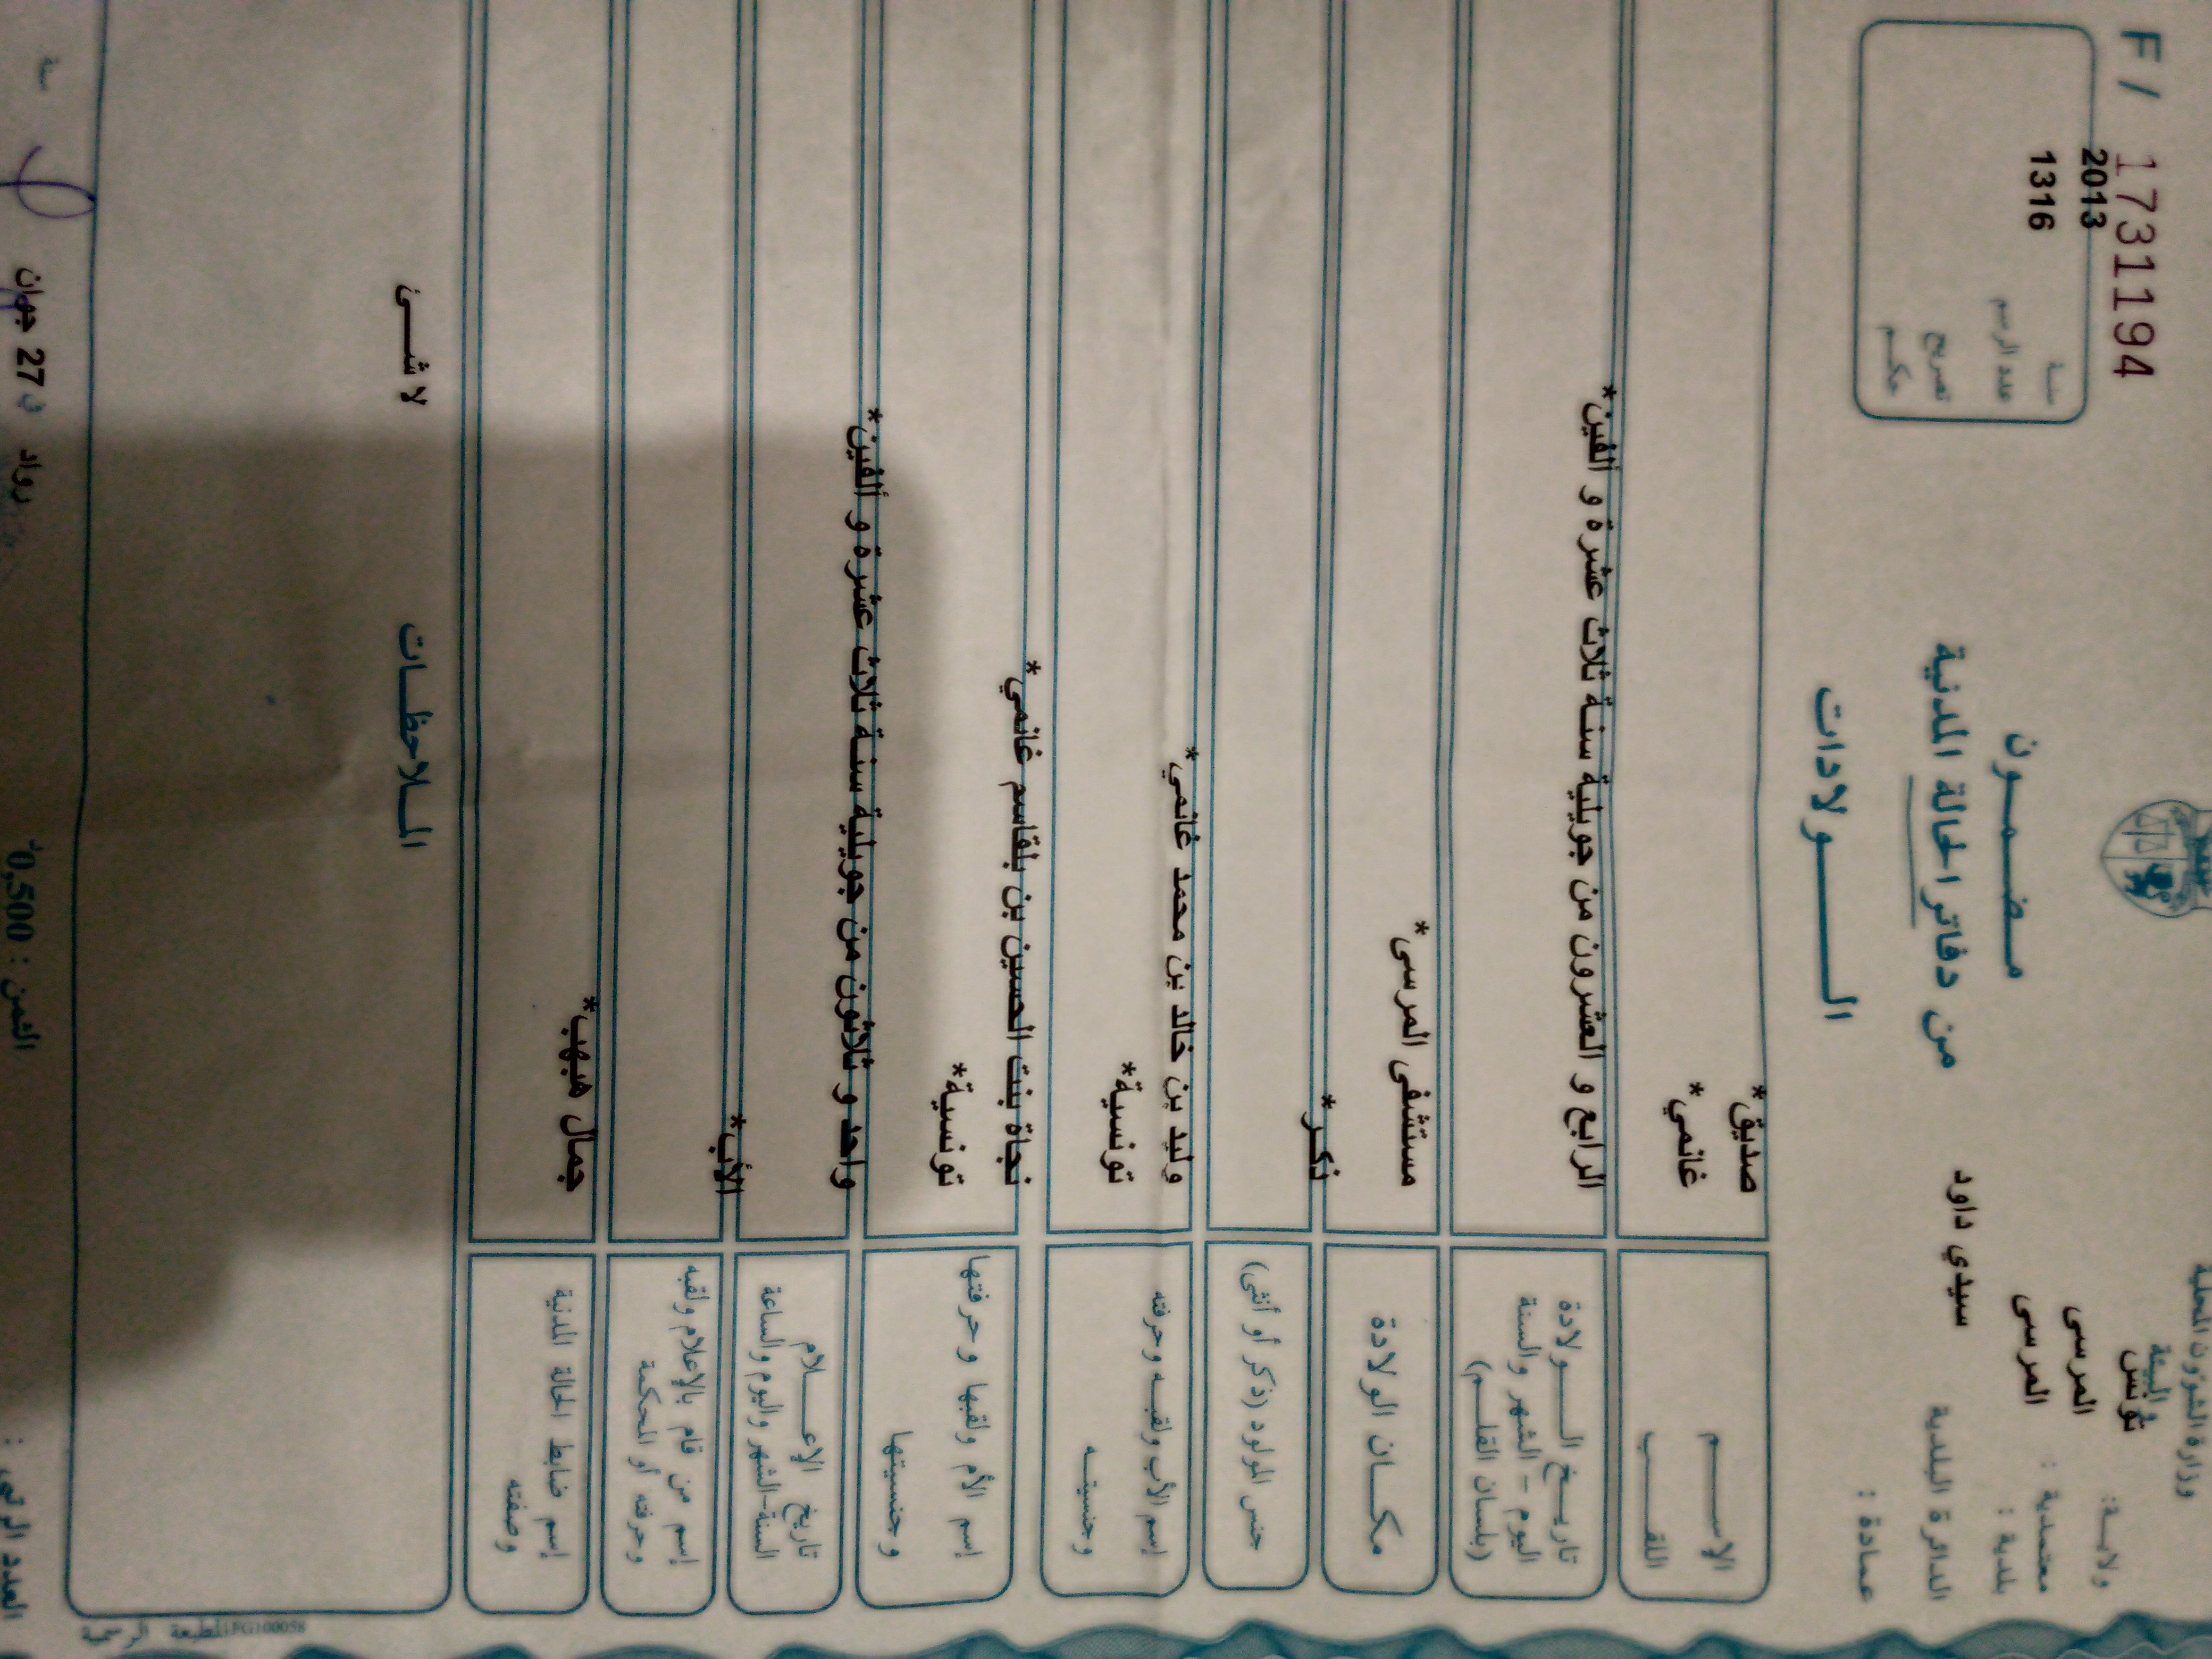 F / 17311194
2013
1316
سنة
عدد الرسم
تصريح
حكم
وزارة الشؤون المحلية
و البيئة
ولاية: تونس
معتمدية : المرسى
بلدية : المرسى
الدائرة البلدية سيدي داود
عمادة :
مضمون
من دفاتر الحالة المدنية
الولادات
الإسم صديق*
اللقب غانمي*
تاريخ الولادة
اليوم - الشهر والسنة
(بلسان القلم)
الرابع و العشرون من جويلية سنة ثلاث عشرة و ألفين*
مكان الولادة مستشفى المرسى*
جنس المولود (ذكر أو أنثى) ذكر*
إسم الأب ولقبه وحرفته
وجنسيته
وليد بن خالد بن محمد غانمي*
تونسية*
إسم الأم ولقبها وحرفتها
وجنسيتها
نجاة بنت الحسين بن بلقاسم غانمي*
تونسية*
تاريخ الإعلام
السنة-الشهر واليوم والساعة
واحد و ثلاثون من جويلية سنة ثلاث عشرة و ألفين*
إسم من قام بالإعلام ولقبه
وحرفته أو المحكمة
الأب*
إسم ضابط الحالة المدنية
وصفته
جمال هبهب*
الملاحظات
لا شئ
رواد في 27 جوان سنة
الثمن : 0,500د
العدد الرتبي :
المطبعة الرسمية FG100058